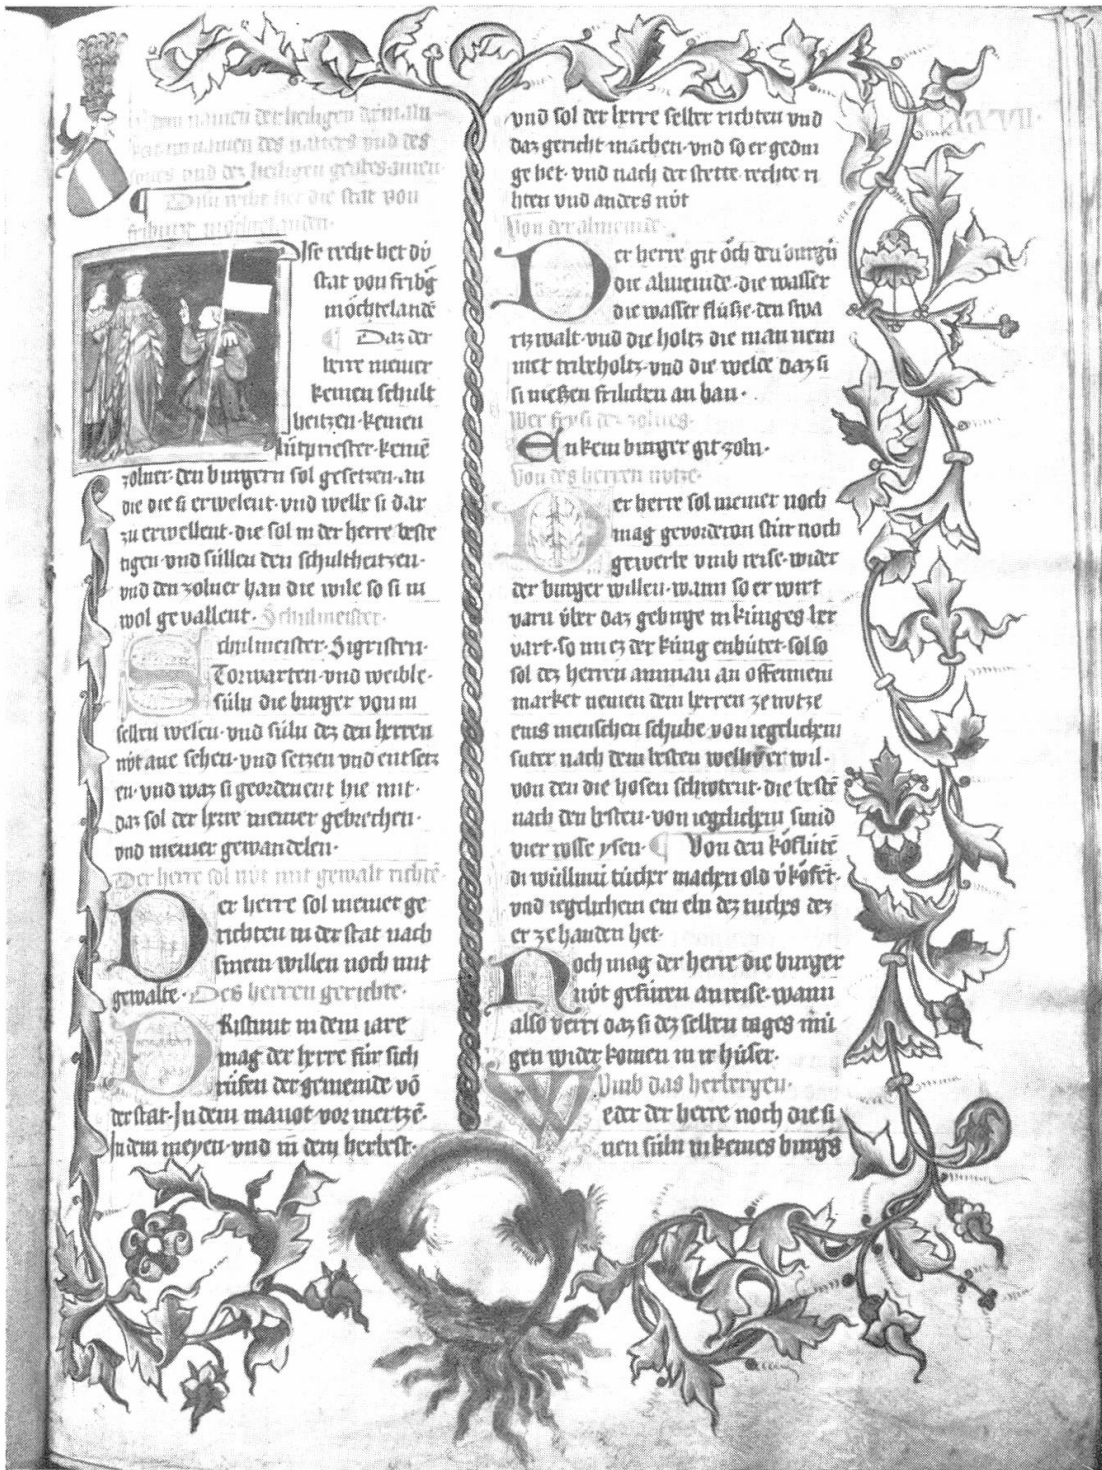 In dem namen der heiligen drin ual
tat im namen des vatters vnd des
sones vnd dez heiligen geistes amen·
Disu recht het die stat von
friburg in öchtelanden·
Dise recht het dů
stat von fribg
in öchtelandē
Daz der
herre niemer
keinen schult
heitzen· keinen
lůtpriester· keinē
zolner· den burgern sol gesetzen· an
die die si erwelent· vnd welle si dar
zu erwellent· die sol in der herre beste
tigen· vnd süllen den schultheitzen·
vnd den zolner han die wile so si in
wol gevallent· Schulmeister·
Schulmeister· Sigristen·
Torwarten· vnd weible·
süln die burger von in
selben welen· vnd süln dez den herren
nút ane sehen· vnd setzen vnd entsetz
en· vnd waz si geordenent hie mit·
daz sol der herre niemer gebrechen·
vnd niemer gewandelen·
Der herre sol nút mit gewalt richtē·
Der herre sol niemer ge
richten in der stat nach
sinem willen noch mit
gewalte· Des herren gerichte·
Dristunt in dem iare
mag der herre für sich
rüfen der gemeinde vō
der stat· In dem manot· vor mertzē·
In dem meyen· vnd in dem herbest·
vnd sol der herre selber richten vnd
daz gericht machen· vnd so er gedin
ge het· vnd nach der stette rechte ri
hten vnd anders nút
Von der almeinde·
Der herre git öch den burgern
die almeinde· die wasser
die wasser flüsze· den swa
rtzwalt· vnd die holtz die man nem
met triberholtz· vnd die welde daz si
si niessen frilichen an ban·
Wer fry si dez zolnes·
Enkein burger git zoln·
Von des herren nutze·
Der herre sol niemer noch
mag gevorderon stür noch
gewerfe vmb reise· wider
der burger willen· wann so er wirt
varn über daz gebirge in küniges her
vart· so im ez der küng enbütet· sol so
sol dez herren amman an offennem
market nemen dem herren ze nutze
eins menschen schuhe von iegelichem
suter nach dem besten welhy er wil·
von den die hosen schrotent· die bestē
nach den besten· von iegelichem smid
vier rosse ysen· Von den köflütē
di wüllinü tücher machen old vkőfēt·
vnd iegelichem ein eln dez tuches dez
er ze handen het·
Noch mag der herre die burger
nút gefüren an reise· wann
also verri daz si dez selben tages mü
gen wider komen in ir hüser·
Vmb das herbergen·
Weder der herre noch die si
nen süln in keines burgs